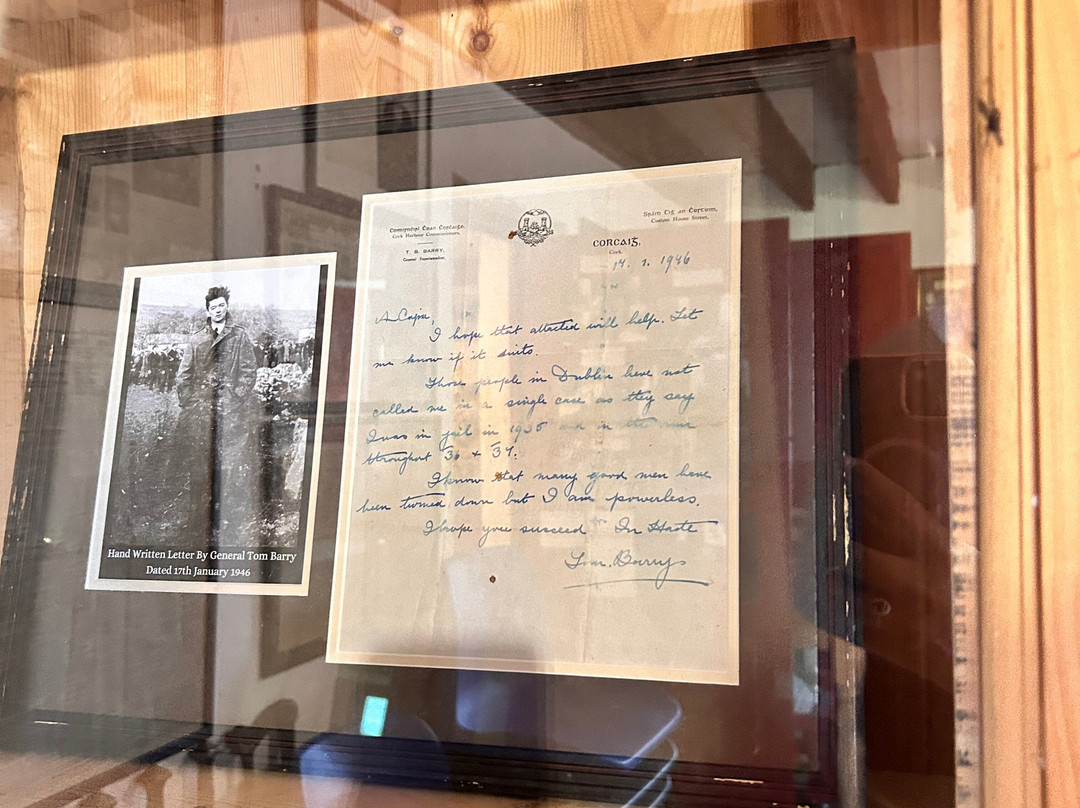 Hand Written Letter By General Tom Barry
Dated 17th January 1946
Cork Harbour Commissioners.
T. B. BARRY,
General Superintendent.
Custom House Street,
CORCAIĠ,
Cork.
17. 1. 1946
A Capa,
I hope that attached will help. Let
me know if it suits.
Those people in Dublin have not
called me in a single case as they say
I was in jail in 1935 and in the
throughout 36 & 37.
I know that many good men have
been turned down but I am powerless.
I hope you succeed In Haste
Tom. Barry